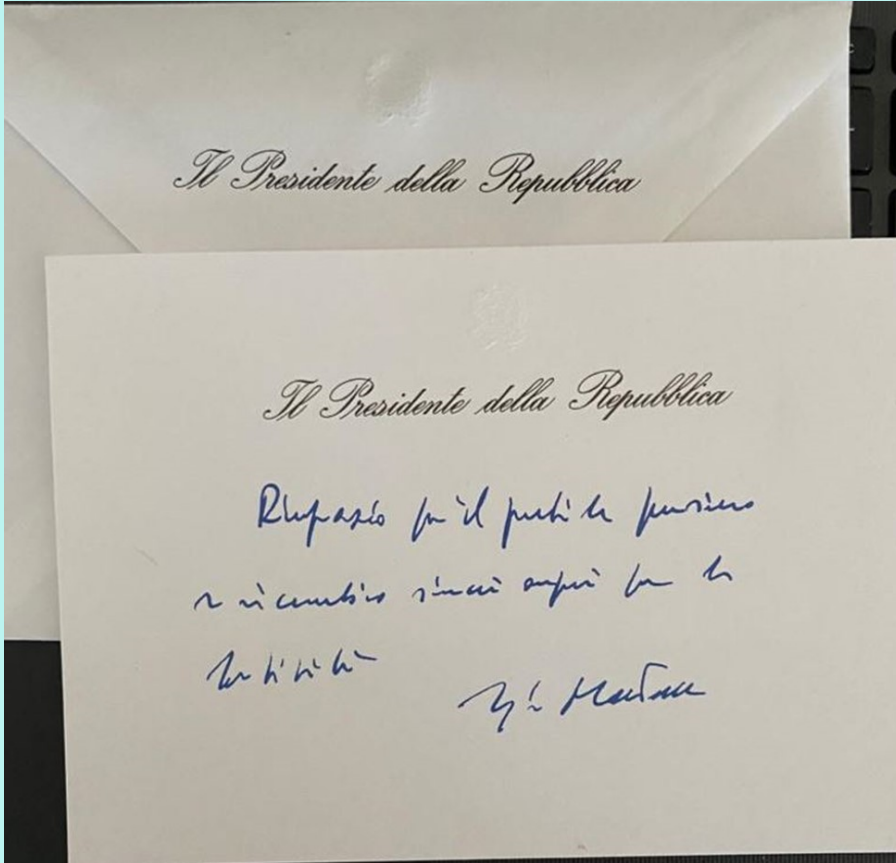 Il Presidente della Repubblica
Il Presidente della Repubblica
Ringrazio per il gentile pensiero
e ricambio sinceri auguri per le
festività